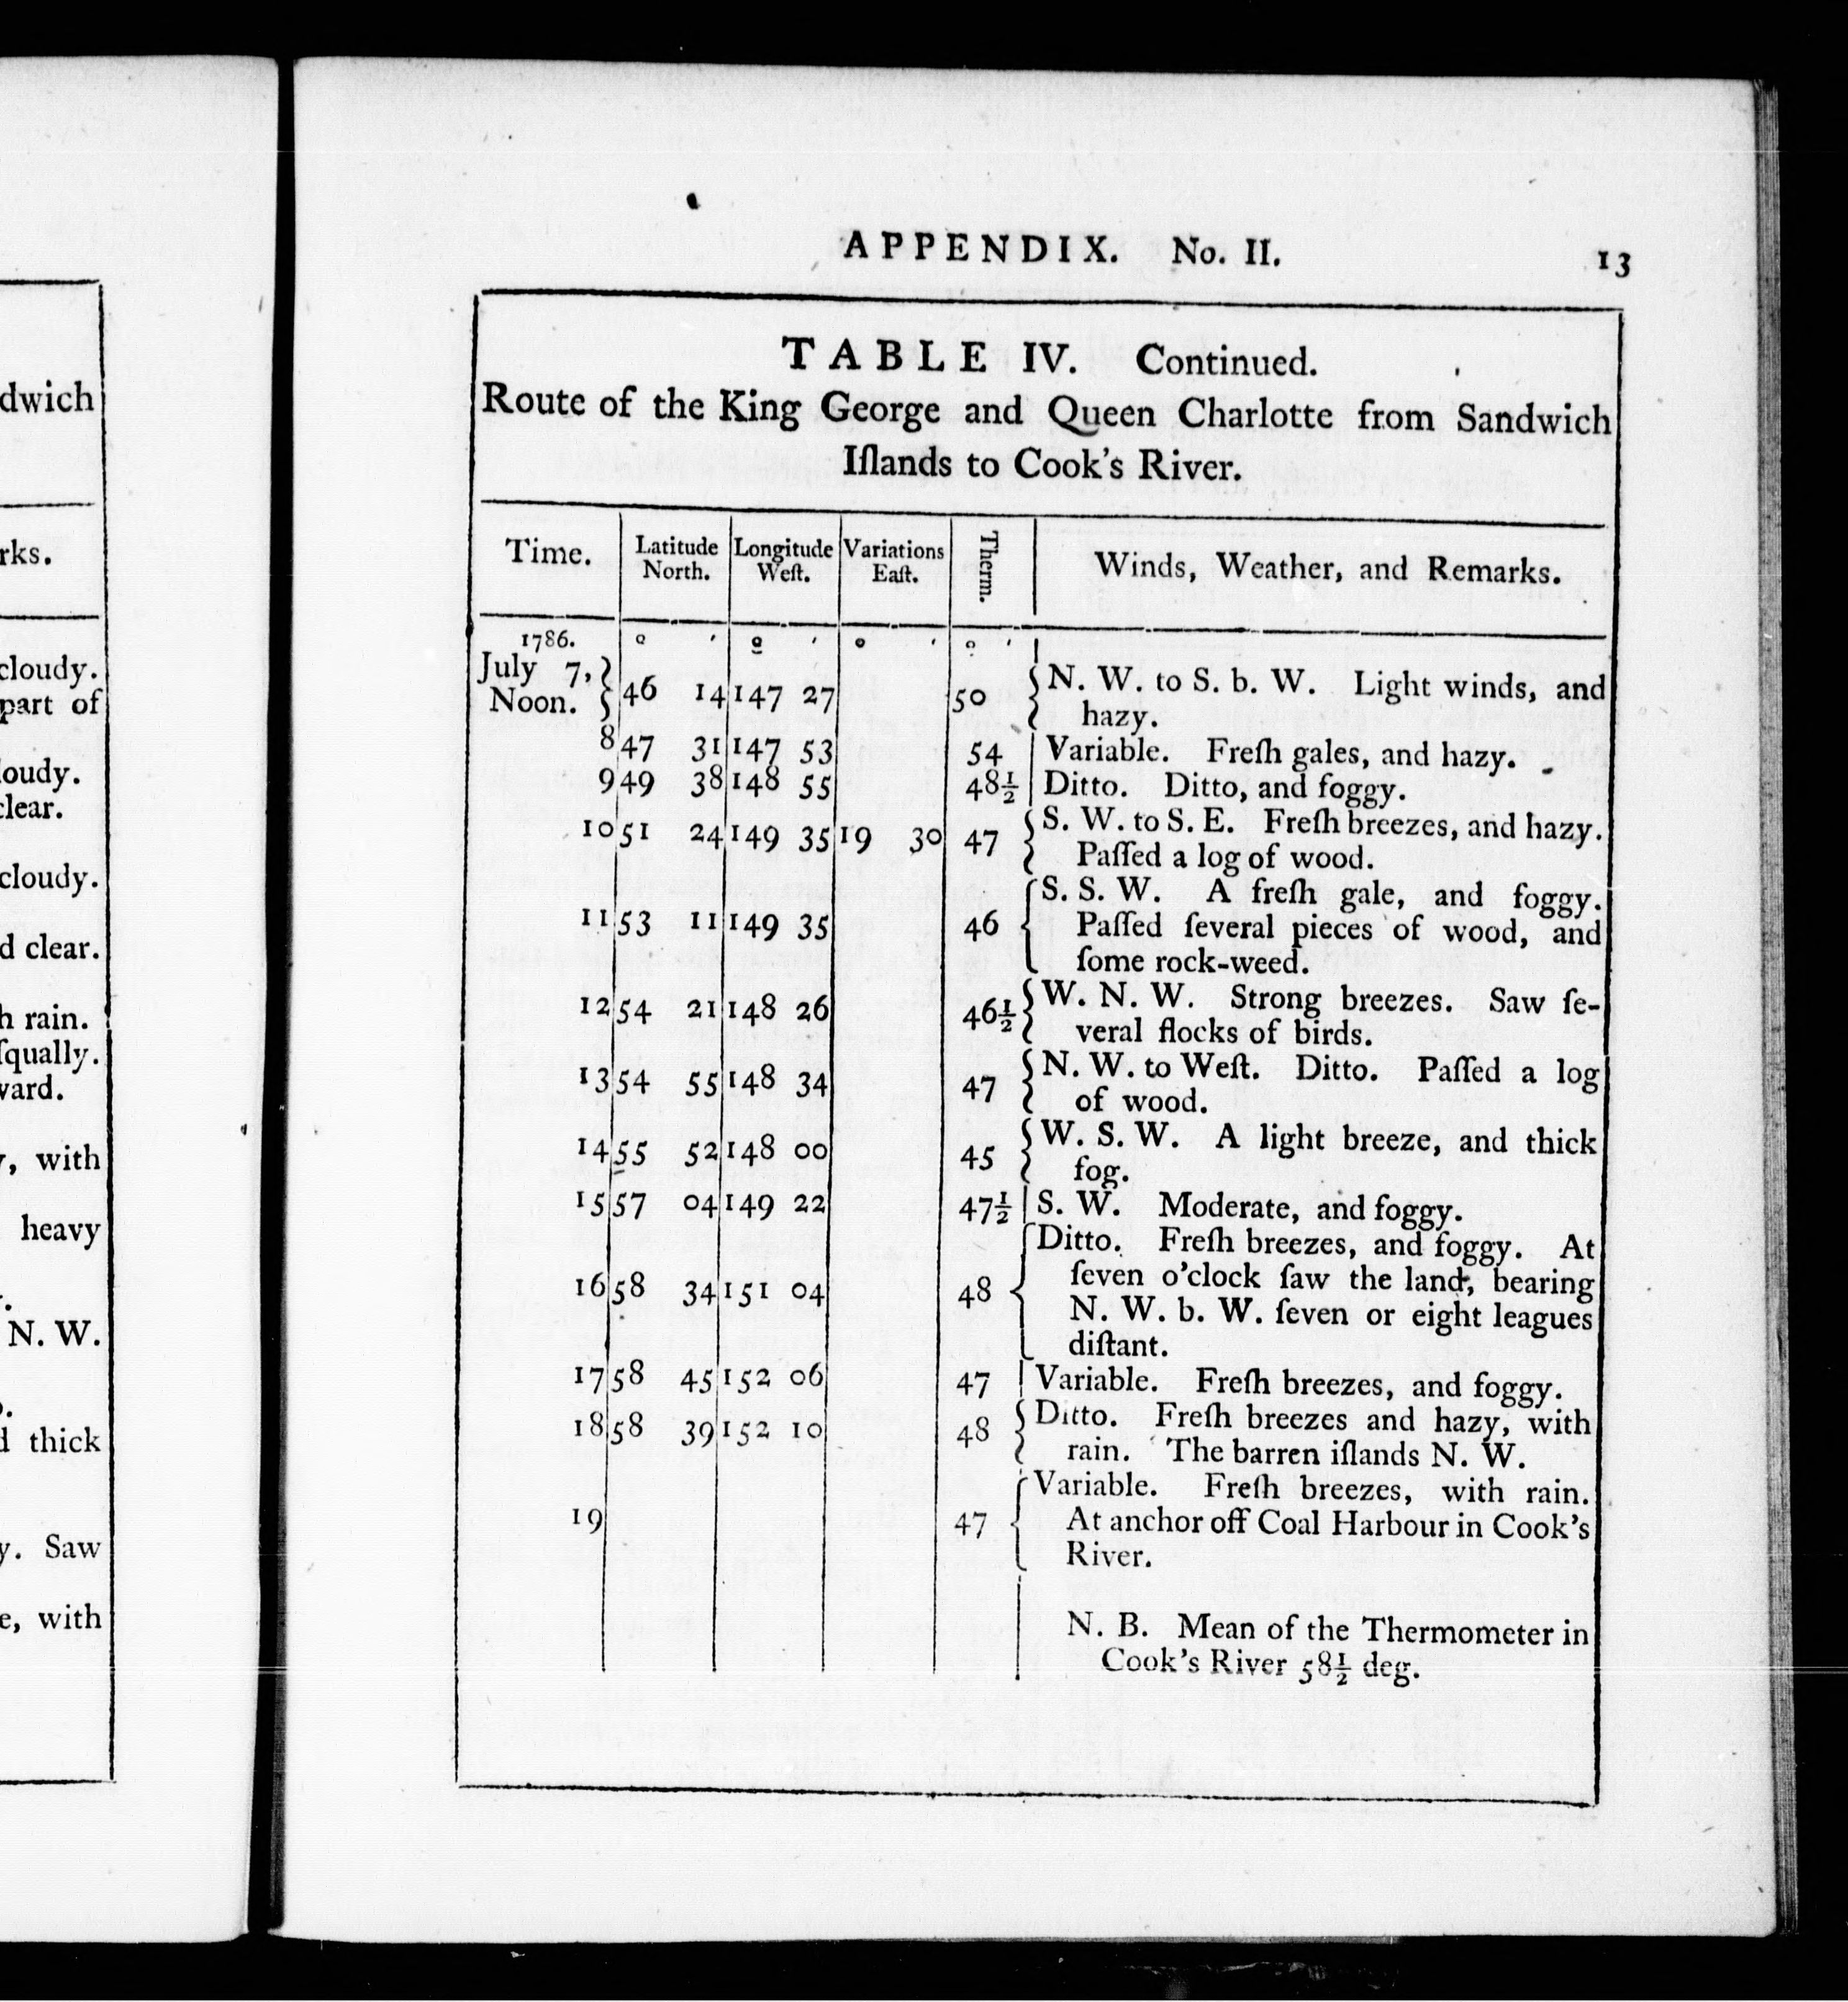 dwich
rks.
cloudy.
part of
loudy.
clear.
cloudy.
d clear.
h rain.
ſqually.
ward.
, with
heavy
N. W.
d thick
y. Saw
e, with
APPENDIX. No. II. 13
TABLE IV. Continued.
Route of the King George and Queen Charlotte from Sandwich
Iſlands to Cook's River.
Time. Latitude North. Longitude Weſt. Variations Eaſt. Therm. Winds, Weather, and Remarks.
1786. ° ′ ° ′ ° ′ ° ′
July 7, Noon. 46 14 147 27 50 N. W. to S. b. W. Light winds, and
hazy.
8 47 31 147 53 54 Variable. Freſh gales, and hazy.
9 49 38 148 55 48½ Ditto. Ditto, and foggy.
10 51 24 149 35 19 30 47 S. W. to S. E. Freſh breezes, and hazy.
Paſſed a log of wood.
11 53 11 149 35 46 S. S. W. A freſh gale, and foggy.
Paſſed ſeveral pieces of wood, and
ſome rock-weed.
12 54 21 148 26 46½ W. N. W. Strong breezes. Saw ſe-
veral flocks of birds.
13 54 55 148 34 47 N. W. to Weſt. Ditto. Paſſed a log
of wood.
14 55 52 148 00 45 W. S. W. A light breeze, and thick
fog.
15 57 04 149 22 47½ S. W. Moderate, and foggy.
16 58 34 151 04 48 Ditto. Freſh breezes, and foggy. At
ſeven o'clock ſaw the land, bearing
N. W. b. W. ſeven or eight leagues
diſtant.
17 58 45 152 06 47 Variable. Freſh breezes, and foggy.
18 58 39 152 10 48 Ditto. Freſh breezes and hazy, with
rain. The barren iſlands N. W.
19 47 Variable. Freſh breezes, with rain.
At anchor off Coal Harbour in Cook's
River.
N. B. Mean of the Thermometer in
Cook's River 58½ deg.